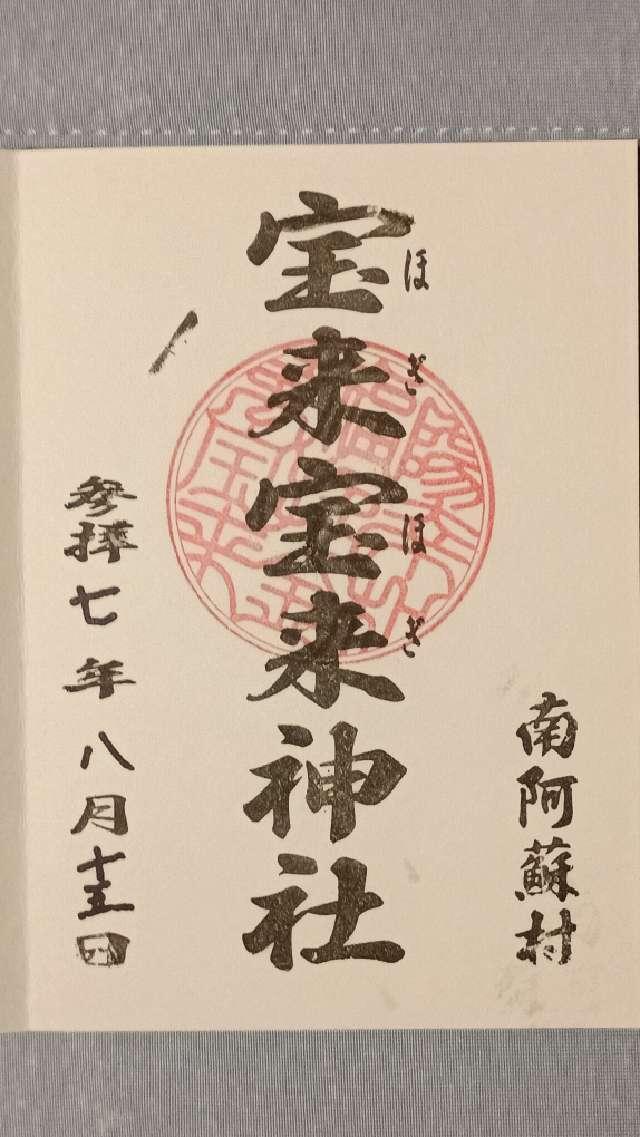 南阿蘇村
宝来宝来神社
ほぎほぎ
参拝七年八月十五日